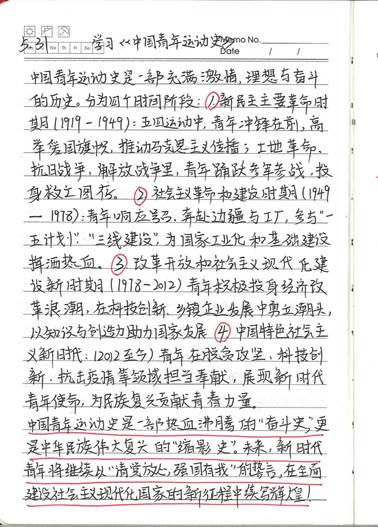 5.31 学习《中国青年运动史》 Memo No.
Mo Tu We Th Fr Sa Su Date / /
中国青年运动史是一部充满激情,理想与奋斗
的历史。分为四个时间阶段:①新民主主要革命时
期(1919-1949):五四运动中,青年冲锋在前,高
举爱国旗帜,推动马克思主义传播;土地革命、
抗日战争、解放战争里,青年踊跃参军参战,投
身救亡图存。②社会主义革命和建设时期(1949
—1978):青年响应号召,奔赴边疆与工厂,参与"一
五计划"、"三线建设",为国家工业化和基础建设
挥洒热血。③改革开放和社会主义现代化建
设新时期(1978-2012)青年积极投身经济改
革浪潮,在科技创新、乡镇企业发展中勇立潮头,
以知识与创造力助力国家发展④中国特色社会主
义新时代:(2012至今)青年在脱贫攻坚、科技创
新、抗击疫情等领域担当奉献,展现新时代
青年使命,为民族复兴贡献青春力量。
中国青年运动史是一部热血沸腾的"奋斗史",更
是中华民族伟大复兴的"缩影史"。未来,新时代
青年将继续以"请党放心,强国有我"的誓言,在全面
建设社会主义现代化国家的新征程中续写辉煌!